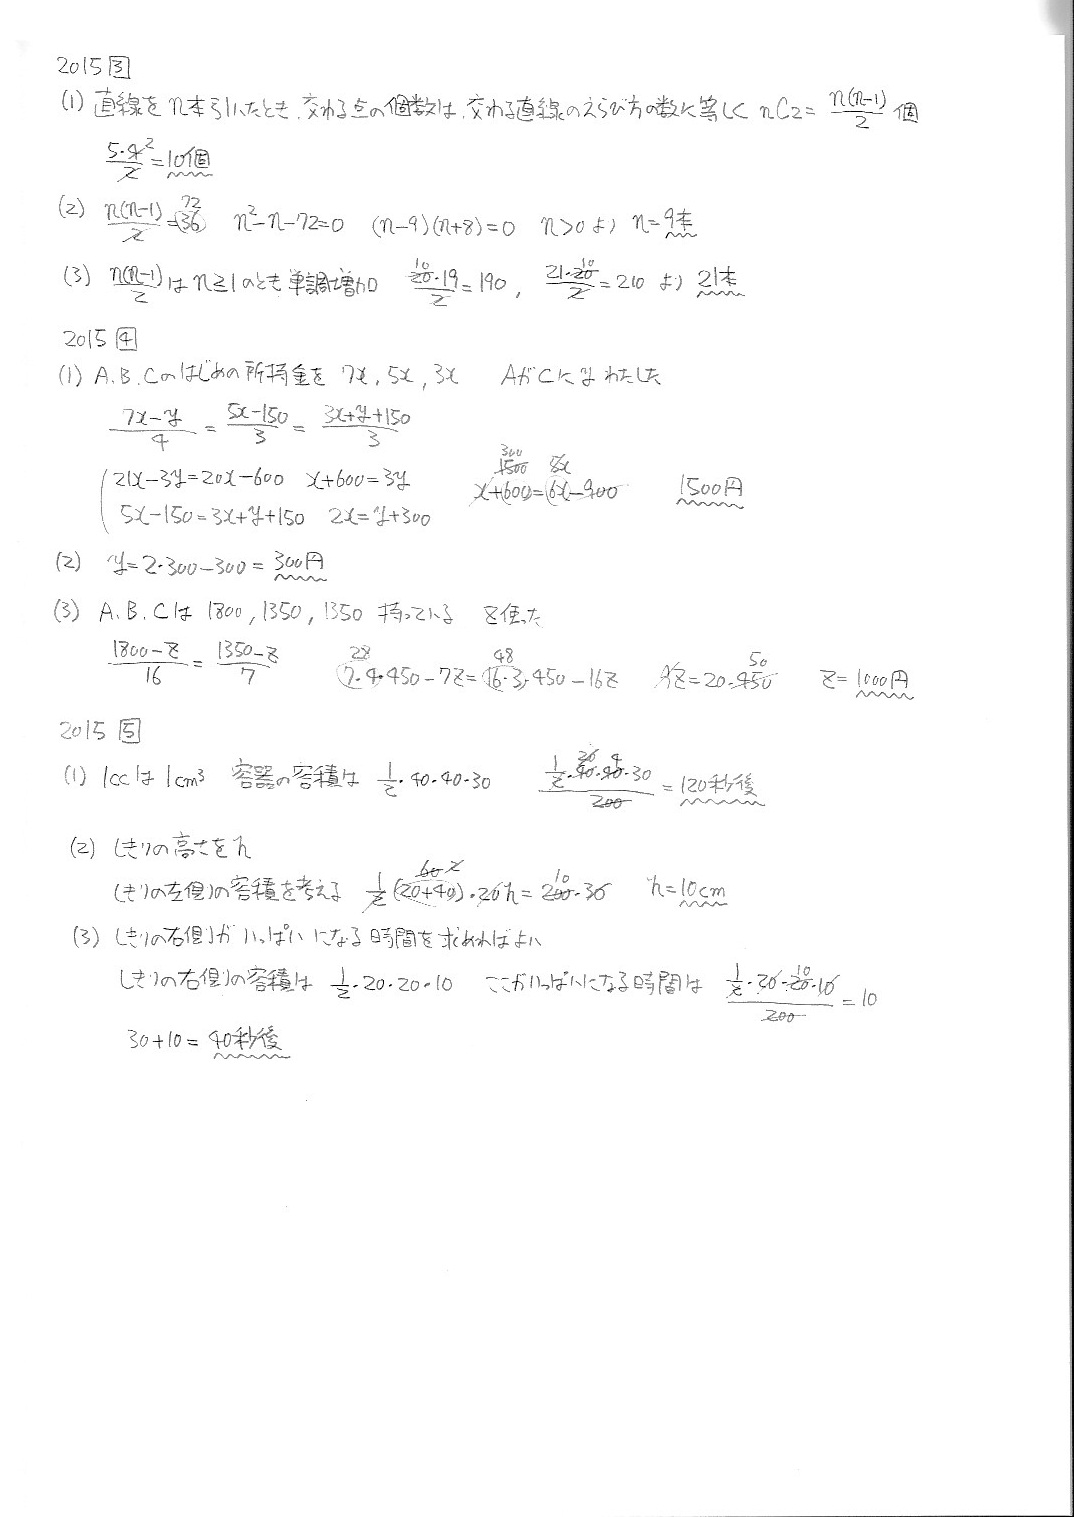 2015 3
(1) 直線をn本引いたとき、交わる点の個数は、交わる直線のえらび方の数に等しく nC2 = n(n-1)/2 個
5・4/2 = 10個
(2) n(n-1)/2 = 36 72 n²-n-72=0 (n-9)(n+8)=0 n>0より n=9本
(3) n(n-1)/2 はn≧1のとき単調増加 20・19/2 = 190, 21・20/2 = 210 より 21本
2015 4
(1) A.B.Cのはじめの所持金を 7x, 5x, 3x AがCにyわたした
7x-y/4 = 5x-150/3 = 3x+y+150/3
21x-3y=20x-600 x+600=3y x+600=6x-900 1500 300 5x 1500円
5x-150=3x+y+150 2x=y+300
(2) y=2・300-300=300円
(3) A.B.Cは 1800, 1350, 1350 持っている zを使った
1800-z/16 = 1350-z/7 7・4・450-7z=16・3・450-16z 28 48 9z=20・450 50 z=1000円
2015 5
(1) 1ccは1cm³ 容器の容積は 1/2・40・40・30 1/2・40・40・30/200 = 120秒後
(2) しきりの高さをh
しきりの左側の容積を考える 1/2(20+40)・20h=200・30 h=10cm
(3) しきりの右側がいっぱいになる時間を求めればよい
しきりの右側の容積は 1/2・20・20・10 ここがいっぱいになる時間は 1/2・20・20・10/200 = 10
30+10=40秒後